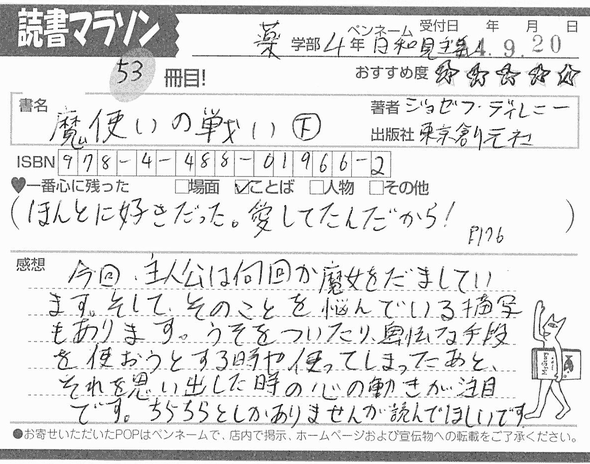 読書マラソン
薬 学部 4年 ペンネーム 日和見 受付日 年 月 日 4.9.20
53 冊目!
おすすめ度 ☆☆☆☆☆
書名 魔使いの戦い 下
著者 ジョゼフ・ディレニー
出版社 東京創元社
ISBN 978-4-488-01966-2
♥一番心に残った □場面 ☑ことば □人物 □その他
(ほんとに好きだった。愛してたんだから!)
P176
感想
今回、主人公は何回か魔女をだましてい
ます。そして、そのことを悩んでいる描写
もあります。うそをついたり、卑怯な手段
を使おうとする時や使ってしまったあと、
それを思い出した時の心の動きが注目
です。ちらちらとしかありませんが読んでほしいです
●お寄せいただいたPOPはペンネームで、店内で掲示、ホームページおよび宣伝物への転載をご了承ください。